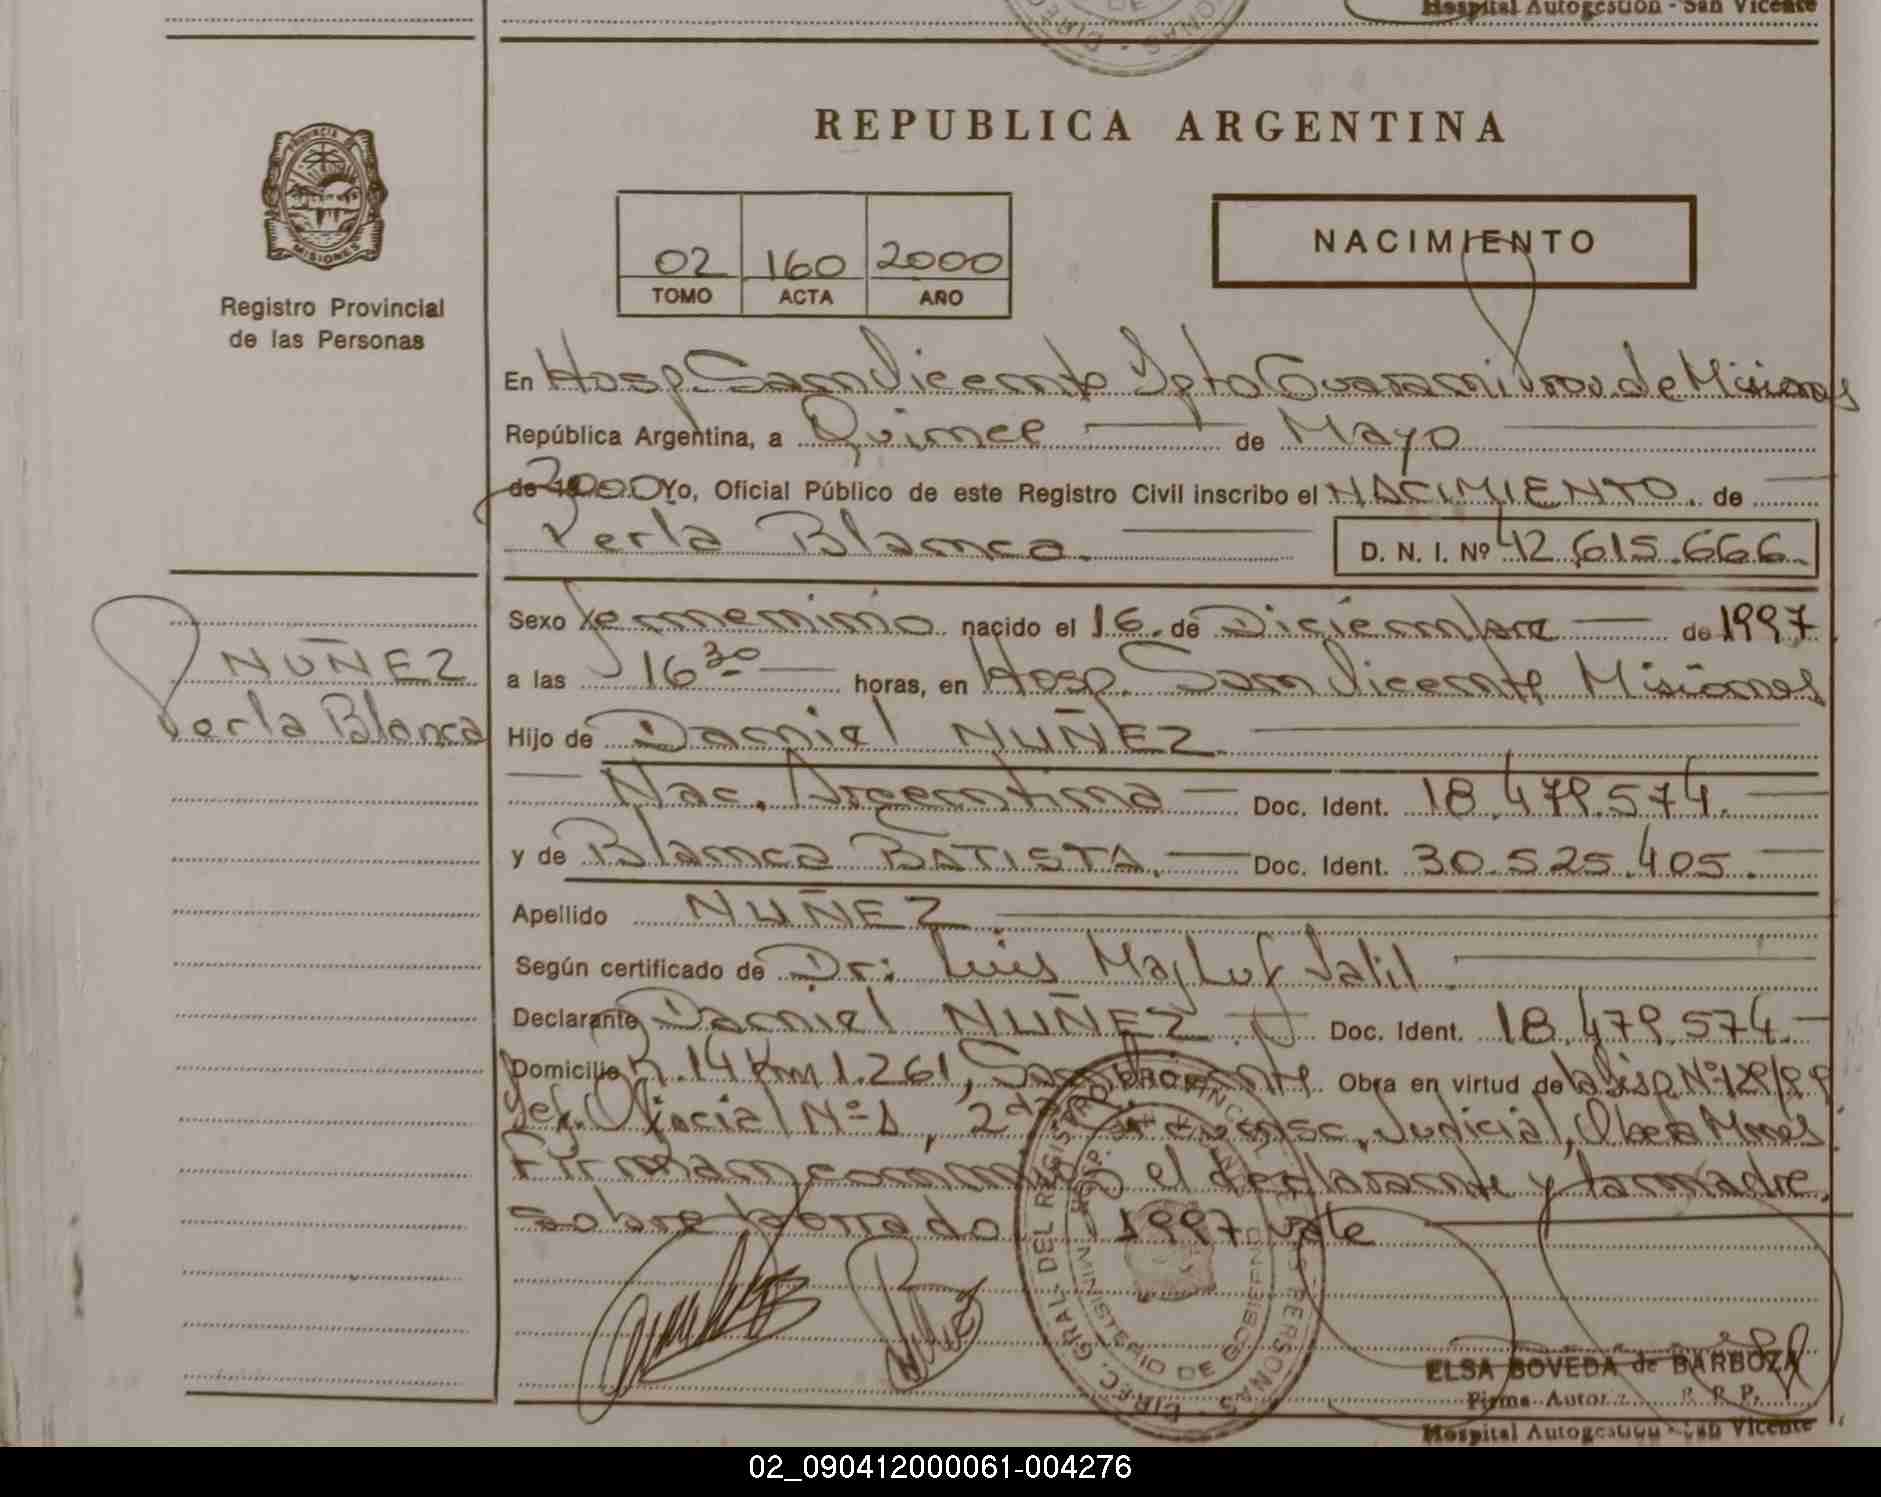 Hospital Autogestion - San Vicente
REPUBLICA ARGENTINA
PROVINCIA
MISIONES
Registro Provincial
de las Personas
02 160 2000
TOMO ACTA AÑO
NACIMIENTO
En Hosp San Vicente Dpto Guarani Prov. de Misiones
República Argentina, a Quince de Mayo
de 2000 Yo, Oficial Público de este Registro Civil inscribo el NACIMIENTO. de
Perla Blanca.
D. N. I. Nº 42.615.666.
Sexo femenino nacido el 16 de Diciembre de 1997
NUÑEZ
Perla Blanca
a las 16 30 horas, en Hosp. San Vicente Misiones
Hijo de Daniel NUÑEZ
Nac. Argentina Doc. Ident. 18.479.574.
y de Blanca BATISTA. Doc. Ident. 30.525.405.
Apellido NUÑEZ
Según certificado de Dr: Luis Jalil
Declarante Daniel NUÑEZ Doc. Ident. 18.479.574.
Domicilio R.14 Km 1.261, San Vicente Obra en virtud de la Disp. Nº 129/99
Def. Oficial Nº 1, 2da Judicial, Obera Mnes.
Firman conmigo el declarante y la madre.
sobreborrado 1997 vale
DIREC. GRAL. DEL REGISTRO PROVINCIAL DE LAS PERSONAS
MINISTERIO DE GOBIERNO
HOSP. SAN VICENTE
ELSA BOVEDA de BARBOZA
Firma Autoriz. R. P. P.
Hospital Autogestion - San Vicente
02_090412000061-004276